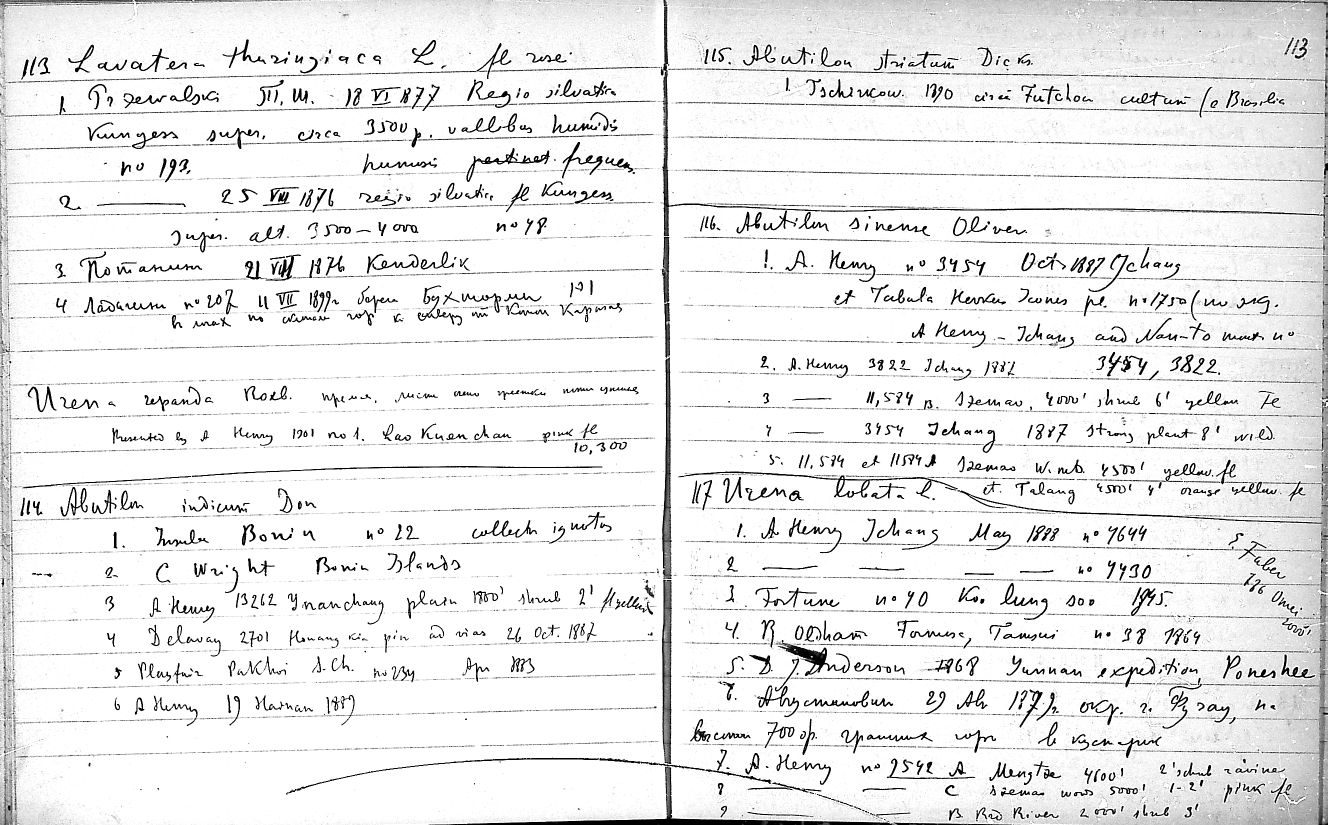 113 Lavatera thuringiaca L. fl rosei
1. Przewalski 18 VI 1877 Regio silvatica
Kunges super. circa 3500 p. vallibus humidis
no 193. humosis pertinet. frequens.
2. —— 25 VIII 1876 regio silvatica fl Kunges
super. alt. 3500–4000 no 48
3 Потанин 21 VIII 1876 Kenderlik
4 Ладыгин no 207 11 VII 1899г.
Urena repanda Roxb.
Presented by A Henry 1901 no 1. Lao Kuen chan pink fl
10,300
114. Abutilon indicum Don
1. Insula Bonin no 22 collector ignotus
2. C Wright Bonin Islands
3 A Henry 13262 plain 1800' shrub 2' fl yellow
4 Delavay 2701 ad vias 26 Oct. 1887
5 Playfair Pakhoi S. Ch. no 234 Apr 1883
6 A Henry 19 Hainan 1889
113
115. Abutilon striatum Dicks.
1. 1890 circa Futchou cultum (e Brasilia
116. Abutilon sinense Oliver
1. A. Henry no 3454 Oct 1887 Ichang
et Tabula Hooker Icones pl. no 1750
A Henry – Ichang and Nan-to mts no
2. A. Henry 3822 Ichang 1887 3454, 3822.
3 —— 11,584 B. Szemao, 4000' shrub 6' yellow Fl
4 —— 3454 Ichang 1887 strong plant 8' wild
5. 11,584 et 11584 A Szemao W. mts. 4500' yellow. fl
et. Talang 4500' 4' orange yellow. fl
117 Urena lobata L.
1. A Henry Ichang May 1888 no 4644
2 —— —— —— —— no 4430
3. Fortune no 40 Koo lung soo 1845.
4. R. Oldham Formosa, Tamsui no 38 1864
5. D. J. Anderson 1868 Yunnan expedition, Poneshee
5. Faber
Omei
6. Августинович 29 1879г. окр. г. на
700 ф. в кустарник
7. A. Henry no 9542 A Mengtze 4600' 2' shrub ravine
8 —— —— C Szemao woods 5000' 1-2' pink fl
9 —— B Red River 2000' shrub 3'